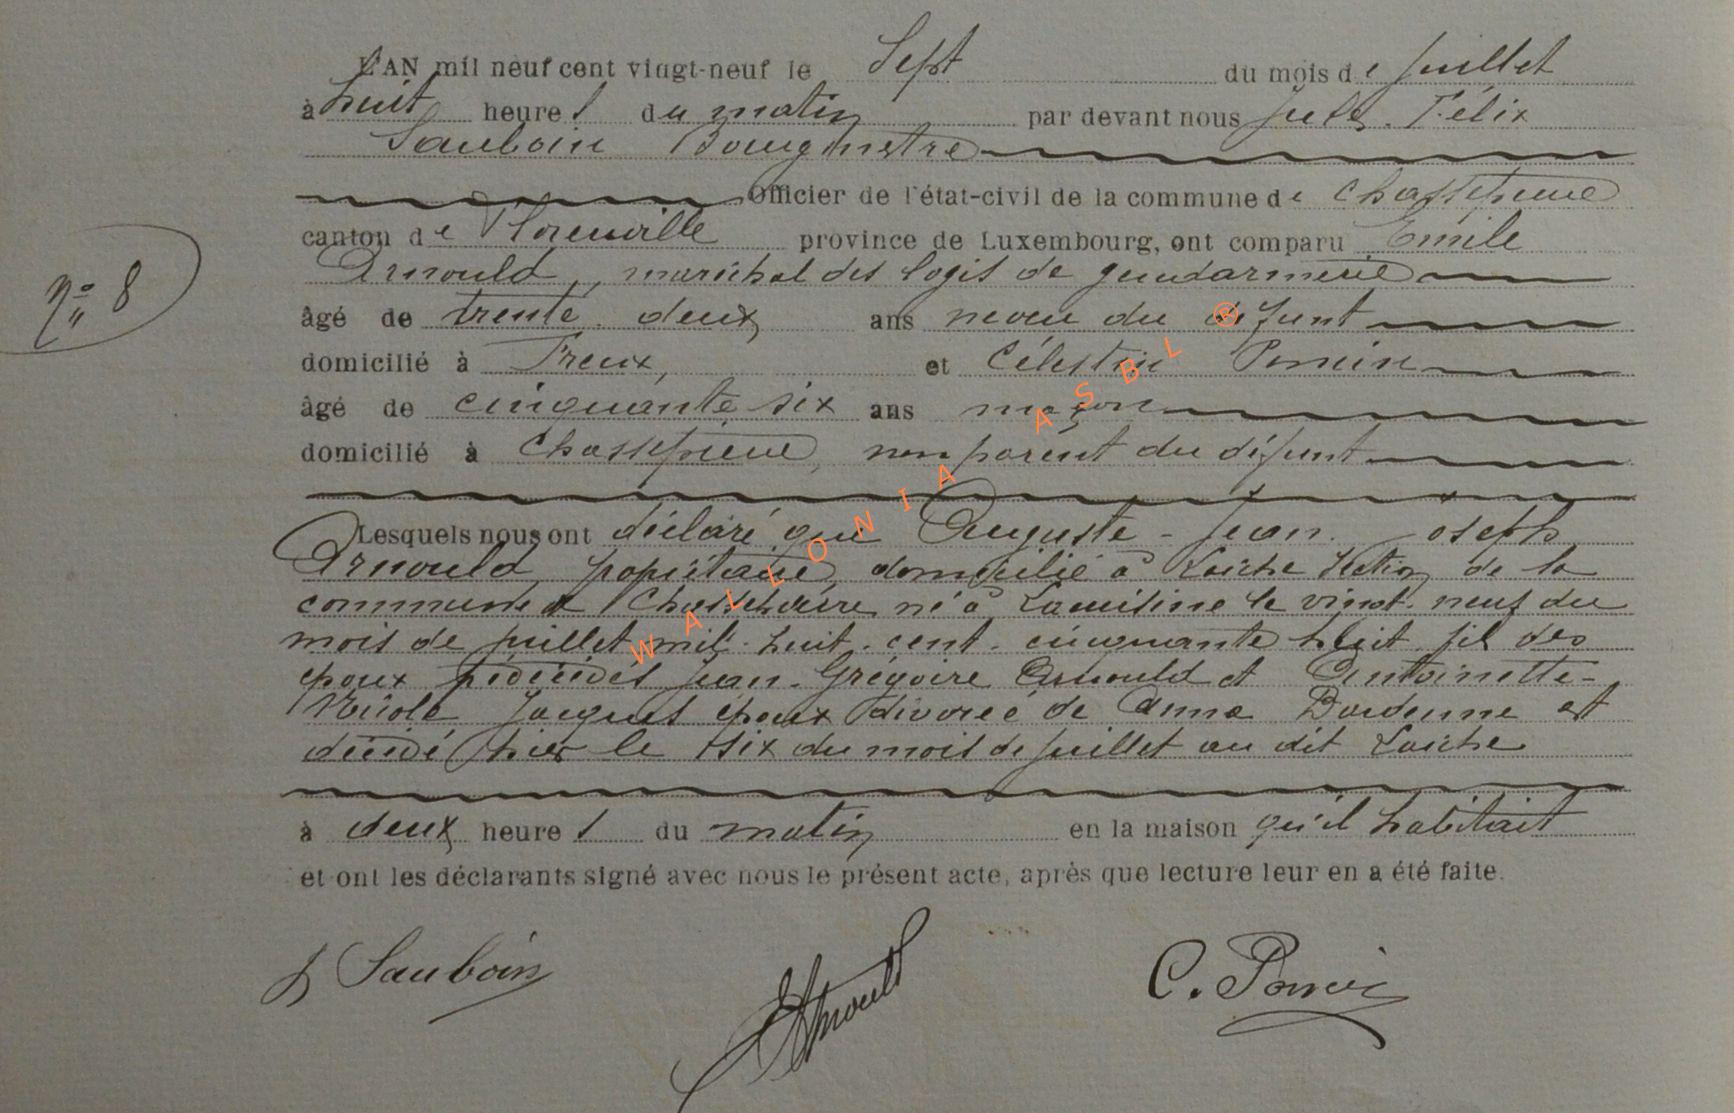 L'AN mil neuf cent vingt-neuf le Sept du mois de juillet
à huit heures du matin par devant nous Jules Félix
Sauboin Bourgmestre
Officier de l'état-civil de la commune de Chassepierre
canton de Florenville province de Luxembourg, ont comparu Emile
Arnould, maréchal des logis de gendarmerie
âgé de trente deux ans neveu du défunt
domicilié à Freux, et Célestin
âgé de cinquante six ans maçon
domicilié à Chassepierre, non parent du défunt
n° 8
Lesquels nous ont déclaré que Auguste - Jean - Joseph
Arnould, propriétaire, domicilié à Laiche section de la
commune de Chassepierre né à le vingt-neuf du
mois de juillet mil-huit-cent-cinquante huit fil des
époux prédécédés Jean-Grégoire Arnould et Antoinette-
Nicole Jacques époux divorcé de Anna est
décédé hier le six du mois de juillet au dit Laiche
à deux heures du matin en la maison qu'il habitait
et ont les déclarants signé avec nous le présent acte, après que lecture leur en a été faite.
J Sauboin EArnould C.
WALLONIA ASBL ®